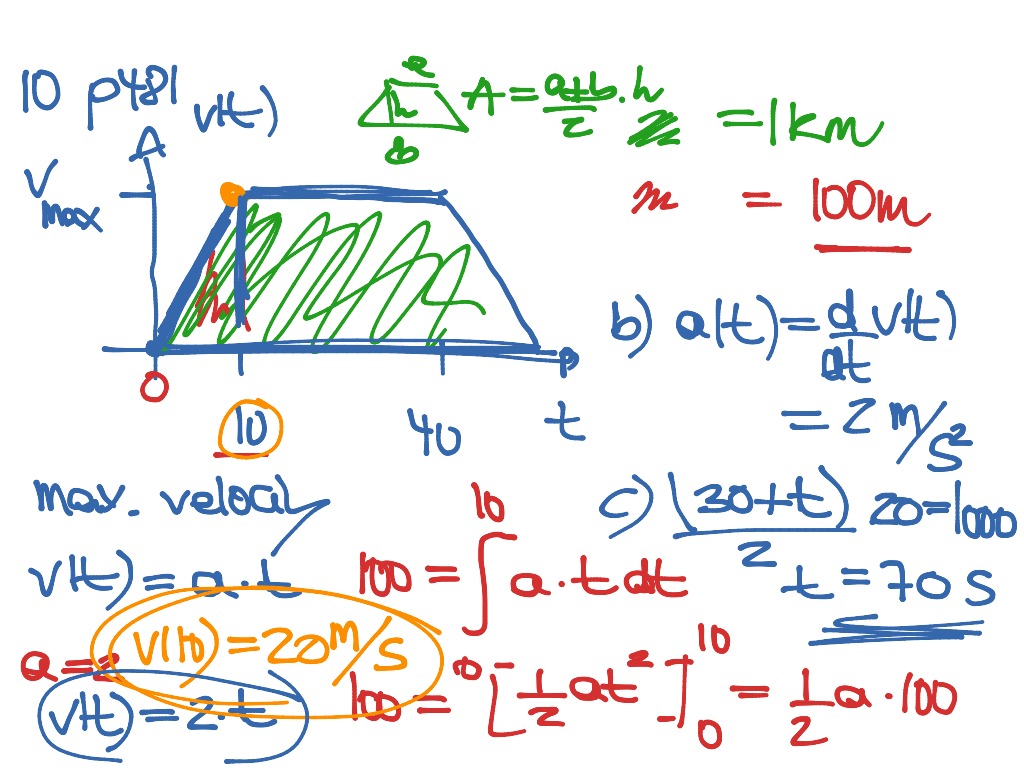 10 p481
v(t)
a
h
b
A = a+b/2 · h
= 1km
= 100m
v max
0
10
40
t
b) a(t) = d/dt v(t)
= 2 m/s²
max. velocity
c) (30+t)/2 20 = 1000
t = 70 s
v(t) = a · t
100 = ∫ 10 0 a · t dt
v(10) = 20 m/s
a = 2
v(t) = 2 · t
100 = [1/2 at²] 10 0 = 1/2 a · 100